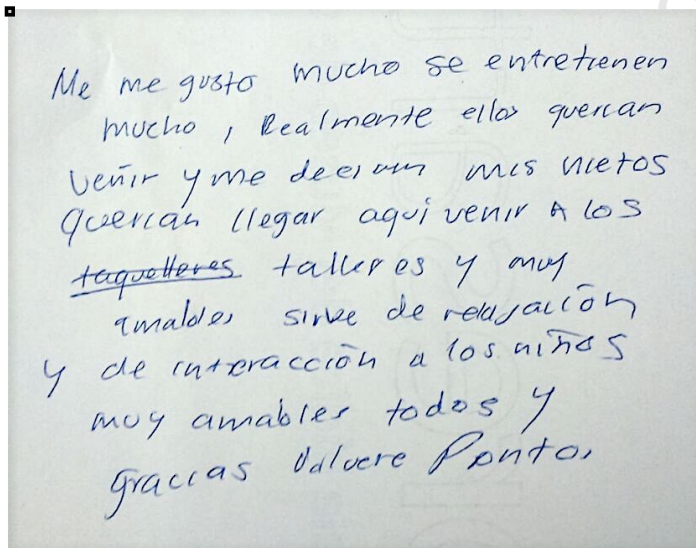 Me me gusto mucho se entretienen
mucho, Realmente ellos querian
veñir y me decian mis nietos
querian llegar aqui venir A los
taquelleres talleres y muy
amables sirve de relajación
y de interacción a los niños
muy amables todos y
gracias Volvere Ponto.